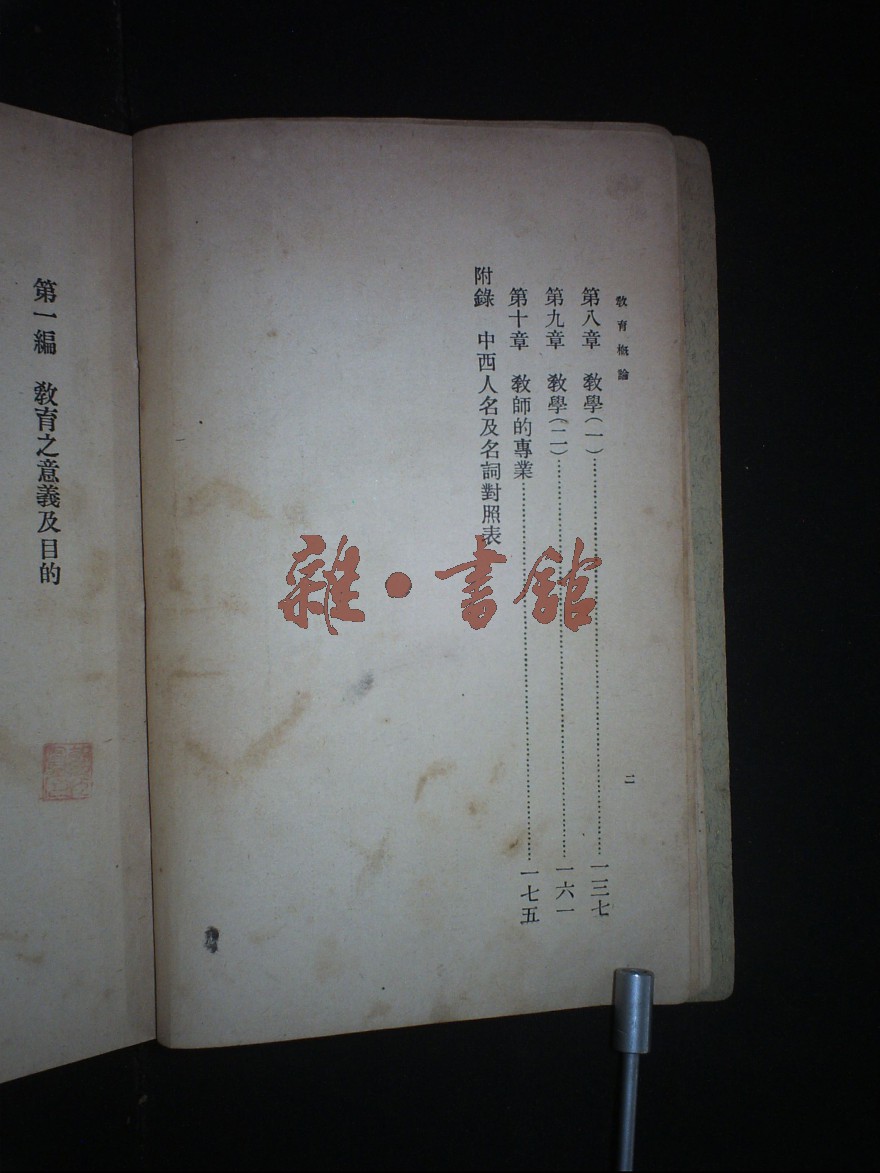 教育概論
第八章　教學(一)……一三七
第九章　教學(二)……一六一
第十章　教師的專業……一七五
附錄　中西人名及名詞對照表
二
第一編　教育之意義及目的
雜·書館